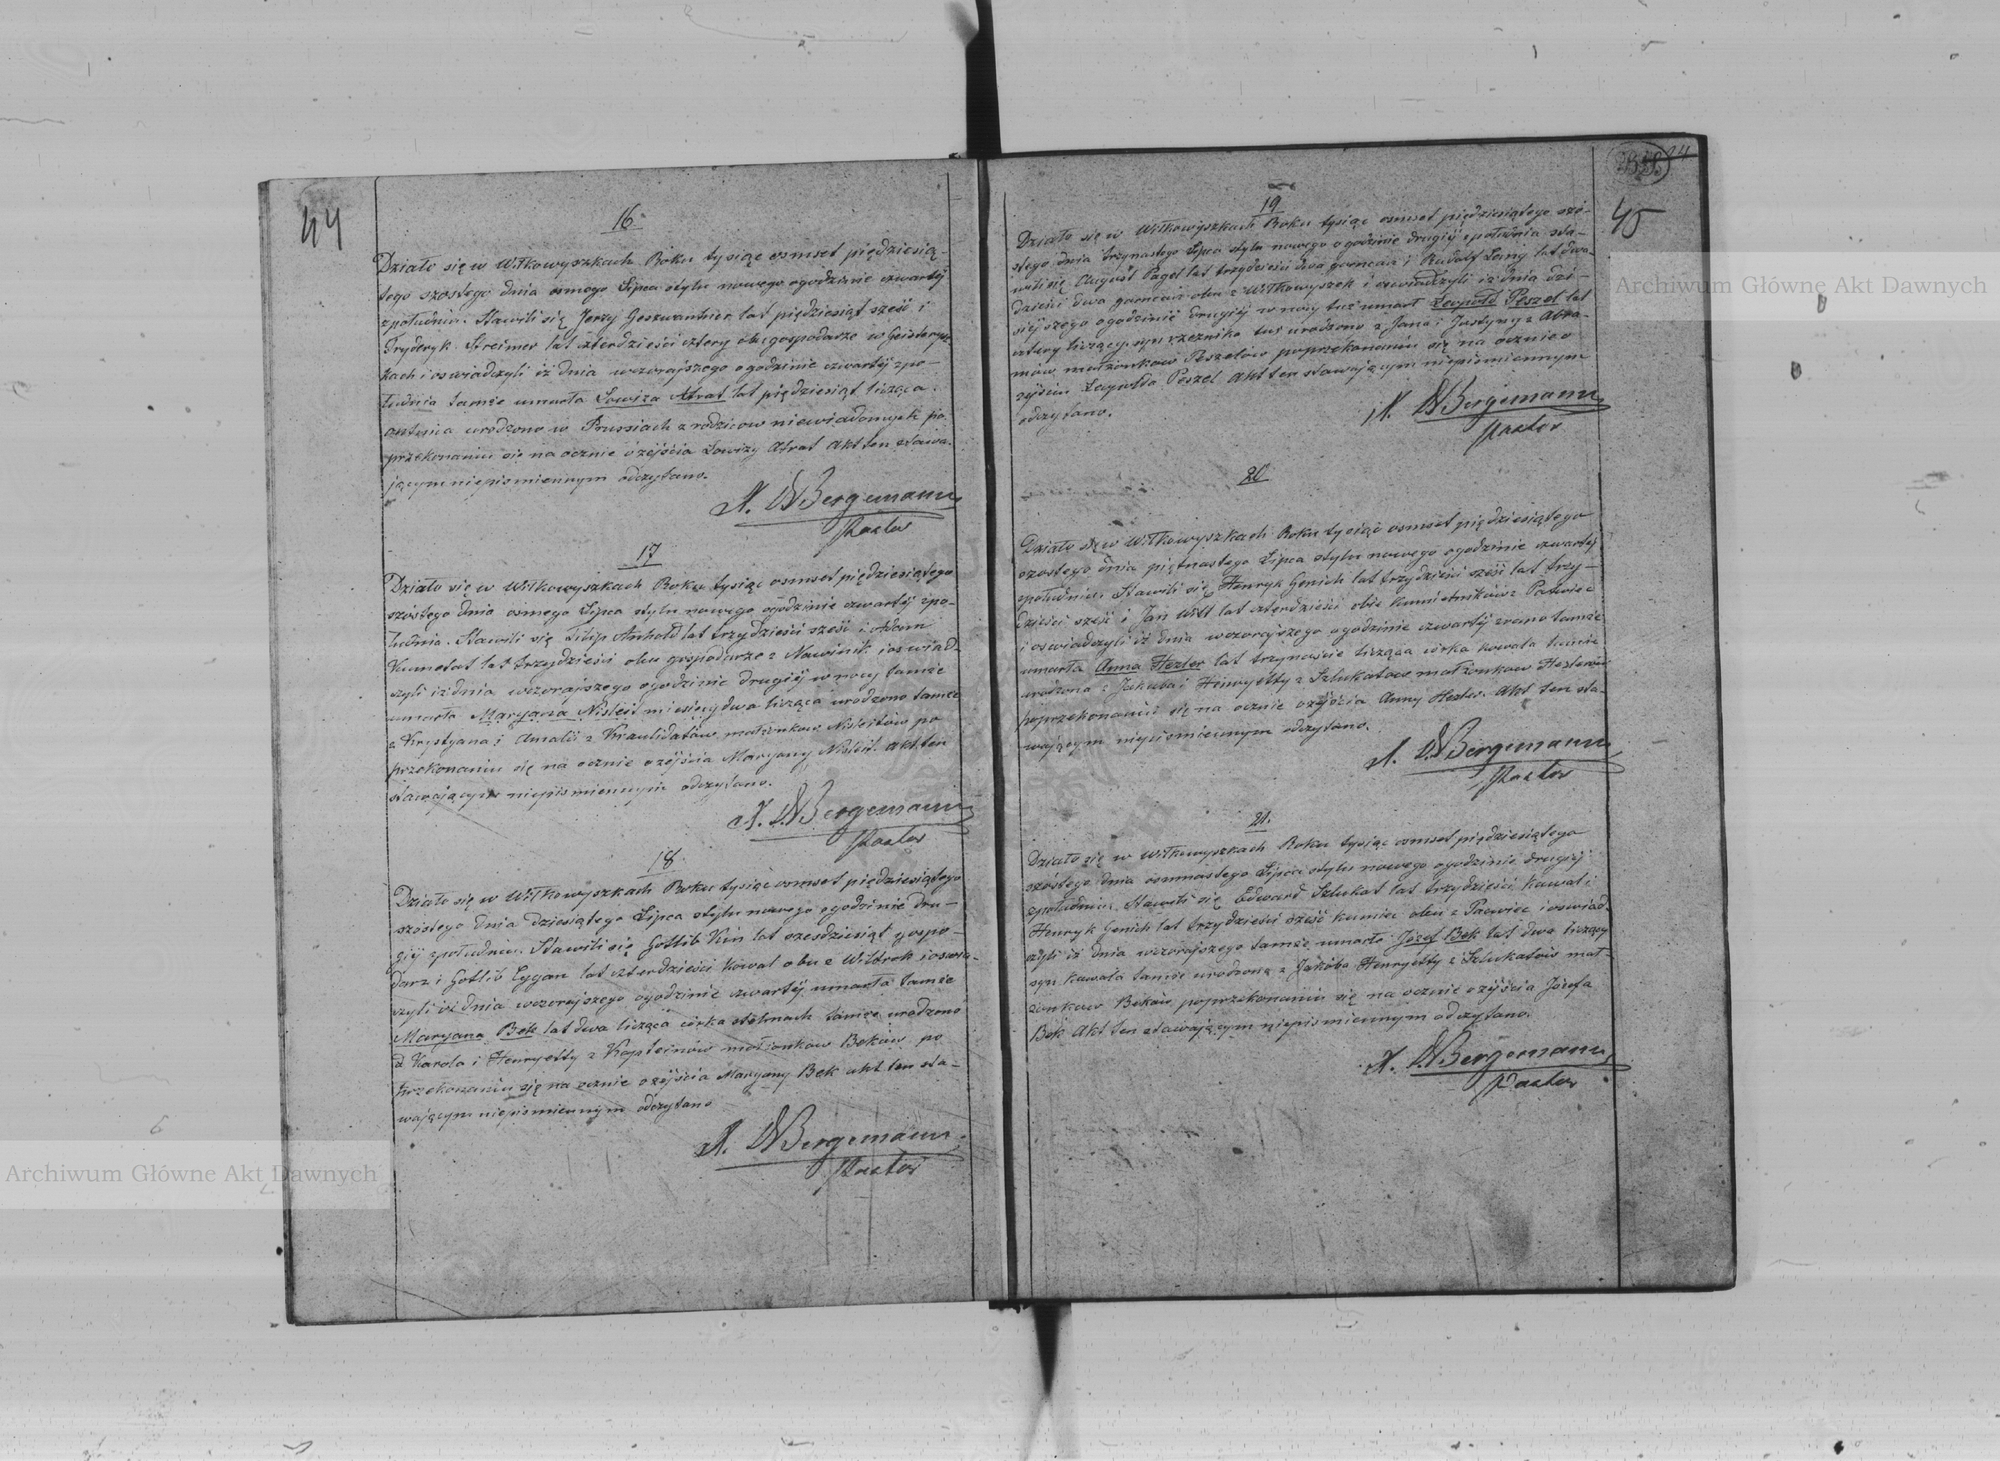 44
16
Działo się w Wiłkowyszkach Roku tysiąc osmset piędziesią-
tego szostego dnia osmego Lipca stylu nowego ogodzinie czwartéj
zpołudnia. Stawili się Jerzy Geszwantner lat piędziesiąt sześć i
Fryderyk Streimer lat czterdzieści cztery obu gospodarze w
kach i oswiadczyli iż dnia wczorajszego ogodzinie czwartéj zpo-
łudnia tamże umarła Lowiza Atrat lat piędziesiąt licząca
urodzona w Prussiach z rodzicow niewiadomych po
przekonaniu się na ocznie o zéjścia Lowizy Atrat Akt ten stawa-
jącym niepismiennym odczytano.
A. W Bergemann
Pastor
17
Działo się w Wiłkowyszkach Roku tysiąc osmset piędziesiątego
szóstego dnia osmego Lipca stylu nowego ogodzinie czwartéj zpo-
łudnia. Stawili się Filip Anhold lat trzydzieści sześć i Adam
Kumetat lat trzydzieści obu gospodarze z Nawinik i oswiad-
czyli iż dnia wczorajszego ogodzinie drugiéj w nocy tamże
umarła Maryana Nisleit miesięcy dwa licząca urodzona tamże
z Krystyana i Amalii z Kraulidatów małżonkow Nisleitów po
przekonaniu się na ocznie o zéjścia Maryany Nisleit. Akt ten
stawającym niepismiennym odczytano.
A. W Bergemann
Pastor
18
Działo się w Wiłkowyszkach Roku tysiąc osmset piędziesiątego
szóstego dnia dziesiątego Lipca stylu nowego ogodzinie dru-
giéj zpołudnia. Stawili się Gottlib Kin lat szesdziesiąt gospo-
darz i Gotlib Cygan lat czterdzieści Kowal obu z i oswia-
czyli iż dnia wczorajszego ogodzinie czwartéj umarła tamże
Maryana Bek lat dwa licząca córka stelmach tamże urodzona
z Karola i Henryetty z Kapsteinów małżonkow Beków po
przekonaniu się na ocznie o zéjścia Maryany Bek akt ten sta-
wającym niepismiennym odczytano
A. W Bergemann
Pastor
24
45
19
Działo się w Wiłkowyszkach Roku tysiąc osmset piędziesiątego szó-
stego dnia trzynastego Lipca stylu nowego ogodzinie drugiéj zpołudnia sta-
wili się August Pagel lat trzydzieści dwa garncarz i Rudolf Lang lat dwa
dzieści dwa garncarz obu z Wiłkowyszek i oswiadczyli iż dnia dzi-
siéjszego ogodzinie drugiéj w nocy tuż umarł Leopold Peszel lat
cztery liczący syn rzeznika tuż urodzony z Jana i Justyny z Abra-
mów małżonkow Peszelów poprzekonaniu się na ocznie o
zéjściu Leopolda Peszel Akt ten stawającym niepismiennym
odczytano.
A. W Bergemann
Pastor
20
Działo się w Wiłkowyszkach Roku tysiąc osmset piędziesiątego
szostego dnia piętnastego Lipca stylu nowego ogodzinie czwartéj
zpołudnia. Stawili się Henryk Genich lat trzydzieści sześć lat trzy-
dzieści sześć i Jan Witt lat czterdzieści obie z
i oswiadczyli iż dnia wczorajszego ogodzinie czwartéj zrano tamże
umarła Anna Hezler lat trzynaście licząca córka kowala tamże
urodzona z Jakuba i Heinryetty z Szlukatow małżonkow Hezlerow
poprzekonaniu się na ocznie o zéjścia Anny Hezler. Akt ten sta-
wającym niepismiennym odczytano.
A. W Bergemann
Pastor
21.
Działo się w Wiłkowyszkach Roku tysiąc osmset piędziesiątego
szóstego dnia osmnastego Lipca stylu nowego ogodzinie drugiéj
zpołudnia. Stawili się Edward Szlukat lat trzydzieści kowal i
Henryk Genich lat trzydzieści sześć kumiec obu z i oswiad-
czyli iż dnia wczorajszego tamże umarł Józef Bek lat dwa liczący
syn kowala tamże urodzony z Jakóba Henryetty z Szlukatów mał-
żonkow Beków poprzekonaniu się na ocznie o zéjścia Józefa
Bek Akt ten stawającym niepismiennym odczytano.
A. W Bergemann
Pastor
Archiwum Główne Akt Dawnych
Archiwum Główne Akt Dawnych